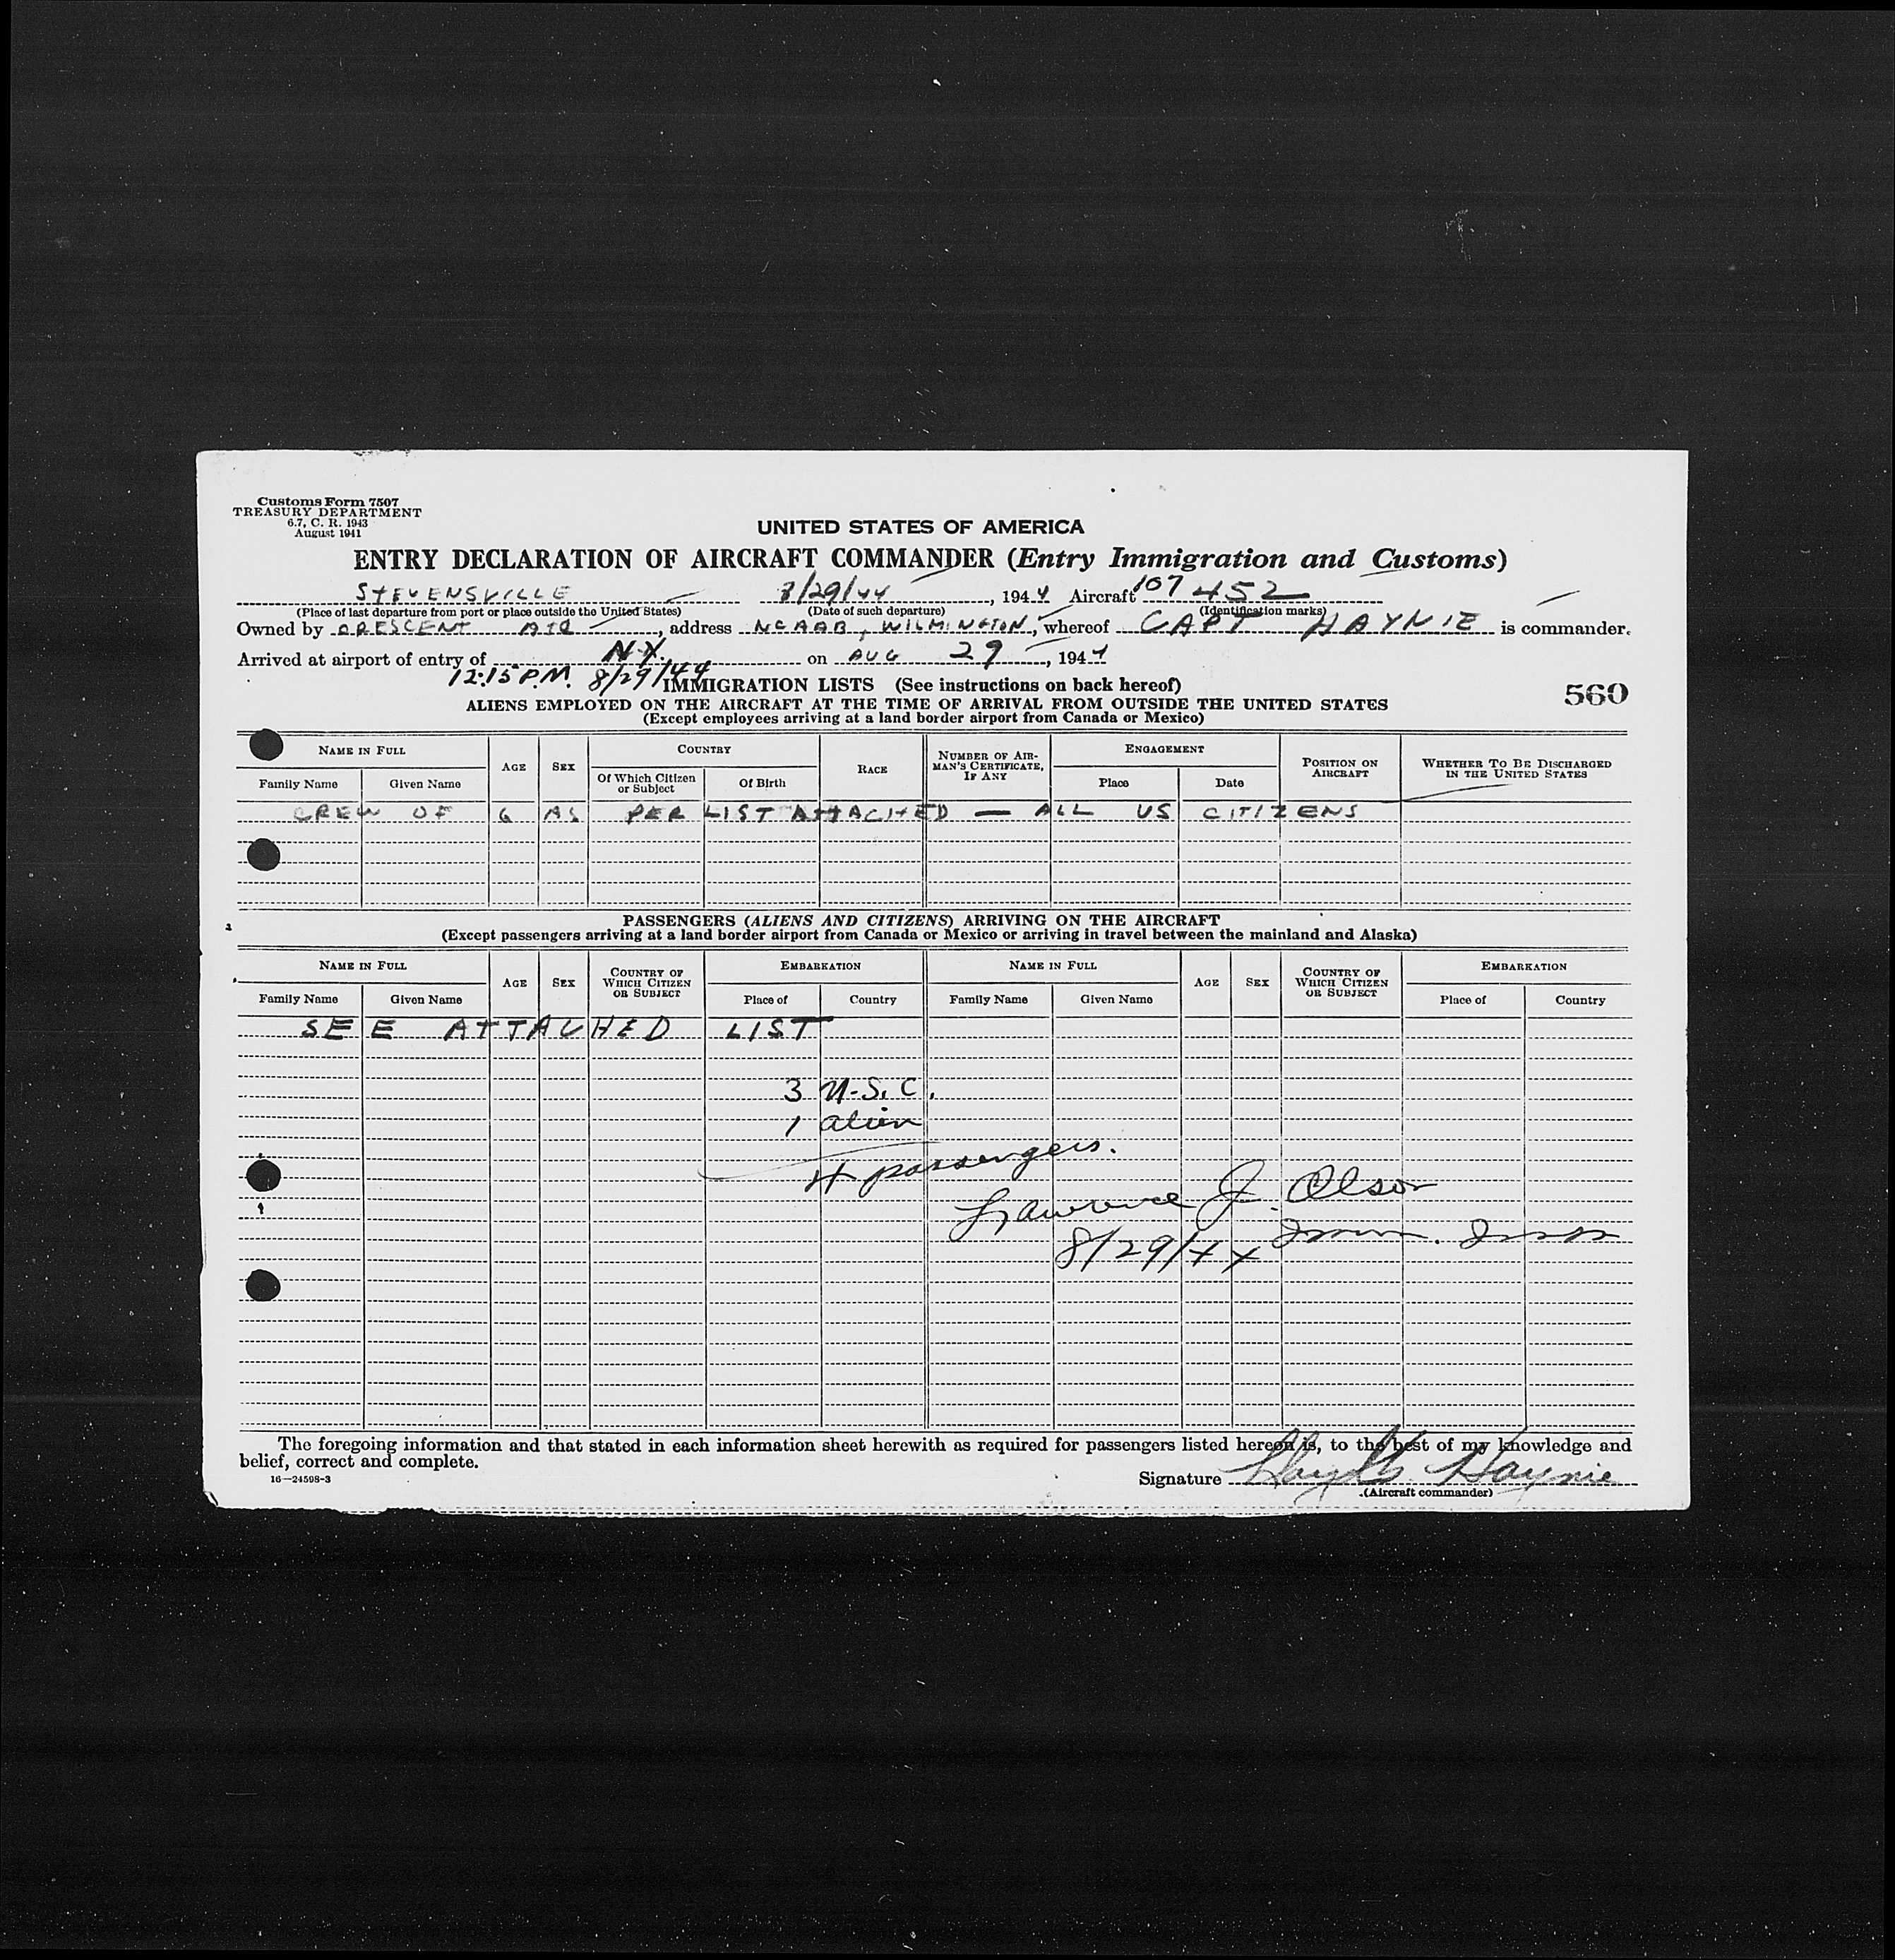 Customs Form 7507
TREASURY DEPARTMENT
6.7, C. R. 1943
August 1941
UNITED STATES OF AMERICA
ENTRY DECLARATION OF AIRCRAFT COMMANDER (Entry Immigration and Customs)
STEVENSVILLE 8/29/44, 1944 Aircraft 107452
(Place of last departure from port or place outside the United States) (Date of such departure) (Identification marks)
Owned by CRESCENT AIR, address NCAAB, WILMINGTON, whereof CAPT HAYNIE is commander.
Arrived at airport of entry of N.Y. on AUG 29, 1944
12:15 P.M. 8/29/44
IMMIGRATION LISTS (See instructions on back hereof)
560
ALIENS EMPLOYED ON THE AIRCRAFT AT THE TIME OF ARRIVAL FROM OUTSIDE THE UNITED STATES
(Except employees arriving at a land border airport from Canada or Mexico)
NAME IN FULL AGE SEX COUNTRY RACE NUMBER OF AIRMAN'S CERTIFICATE, IF ANY ENGAGEMENT POSITION ON AIRCRAFT WHETHER TO BE DISCHARGED IN THE UNITED STATES
Family Name Given Name Of Which Citizen or Subject Of Birth Place Date
CREW OF 6 AS PER LIST ATTACHED — ALL US CITIZENS
PASSENGERS (ALIENS AND CITIZENS) ARRIVING ON THE AIRCRAFT
(Except passengers arriving at a land border airport from Canada or Mexico or arriving in travel between the mainland and Alaska)
NAME IN FULL AGE SEX COUNTRY OF WHICH CITIZEN OR SUBJECT EMBARKATION NAME IN FULL AGE SEX COUNTRY OF WHICH CITIZEN OR SUBJECT EMBARKATION
Family Name Given Name Place of Country Family Name Given Name Place of Country
SEE ATTACHED LIST
3 U.S.C.
1 alien
4 passengers.
Lawrence J. Olson
8/29/44 Imm. Insp
The foregoing information and that stated in each information sheet herewith as required for passengers listed hereon is, to the best of my knowledge and
belief, correct and complete.
16—24598-3
Signature Haynie
(Aircraft commander)